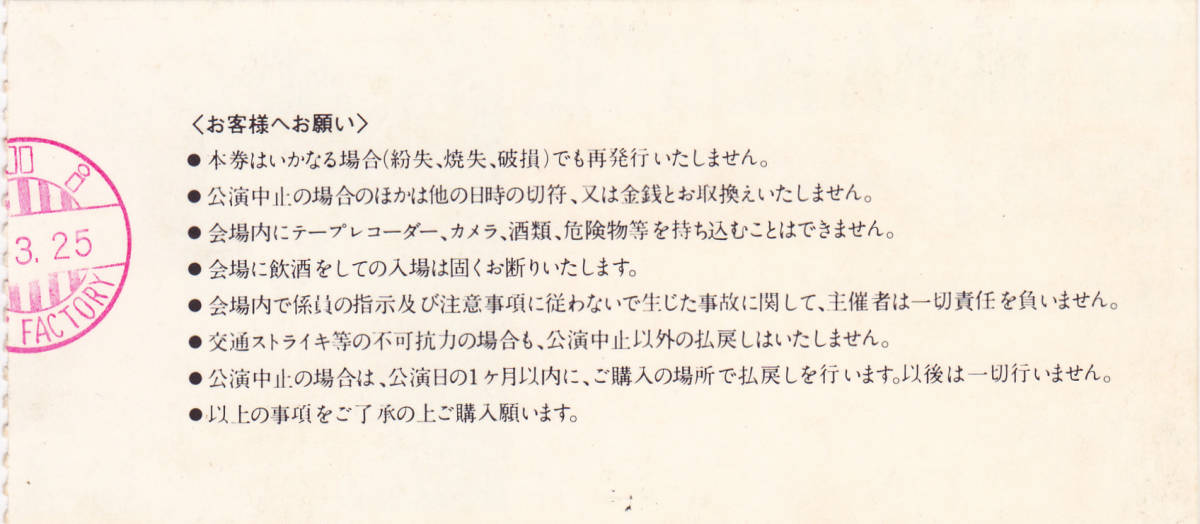 〈お客様へお願い〉
●本券はいかなる場合(紛失、焼失、破損)でも再発行いたしません。
●公演中止の場合のほかは他の日時の切符、又は金銭とお取換えいたしません。
●会場内にテープレコーダー、カメラ、酒類、危険物等を持ち込むことはできません。
●会場に飲酒をしての入場は固くお断りいたします。
●会場内で係員の指示及び注意事項に従わないで生じた事故に関して、主催者は一切責任を負いません。
●交通ストライキ等の不可抗力の場合も、公演中止以外の払戻しはいたしません。
●公演中止の場合は、公演日の1ヶ月以内に、ご購入の場所で払戻しを行います。以後は一切行いません。
●以上の事項をご了承の上ご購入願います。
3.25
FACTORY